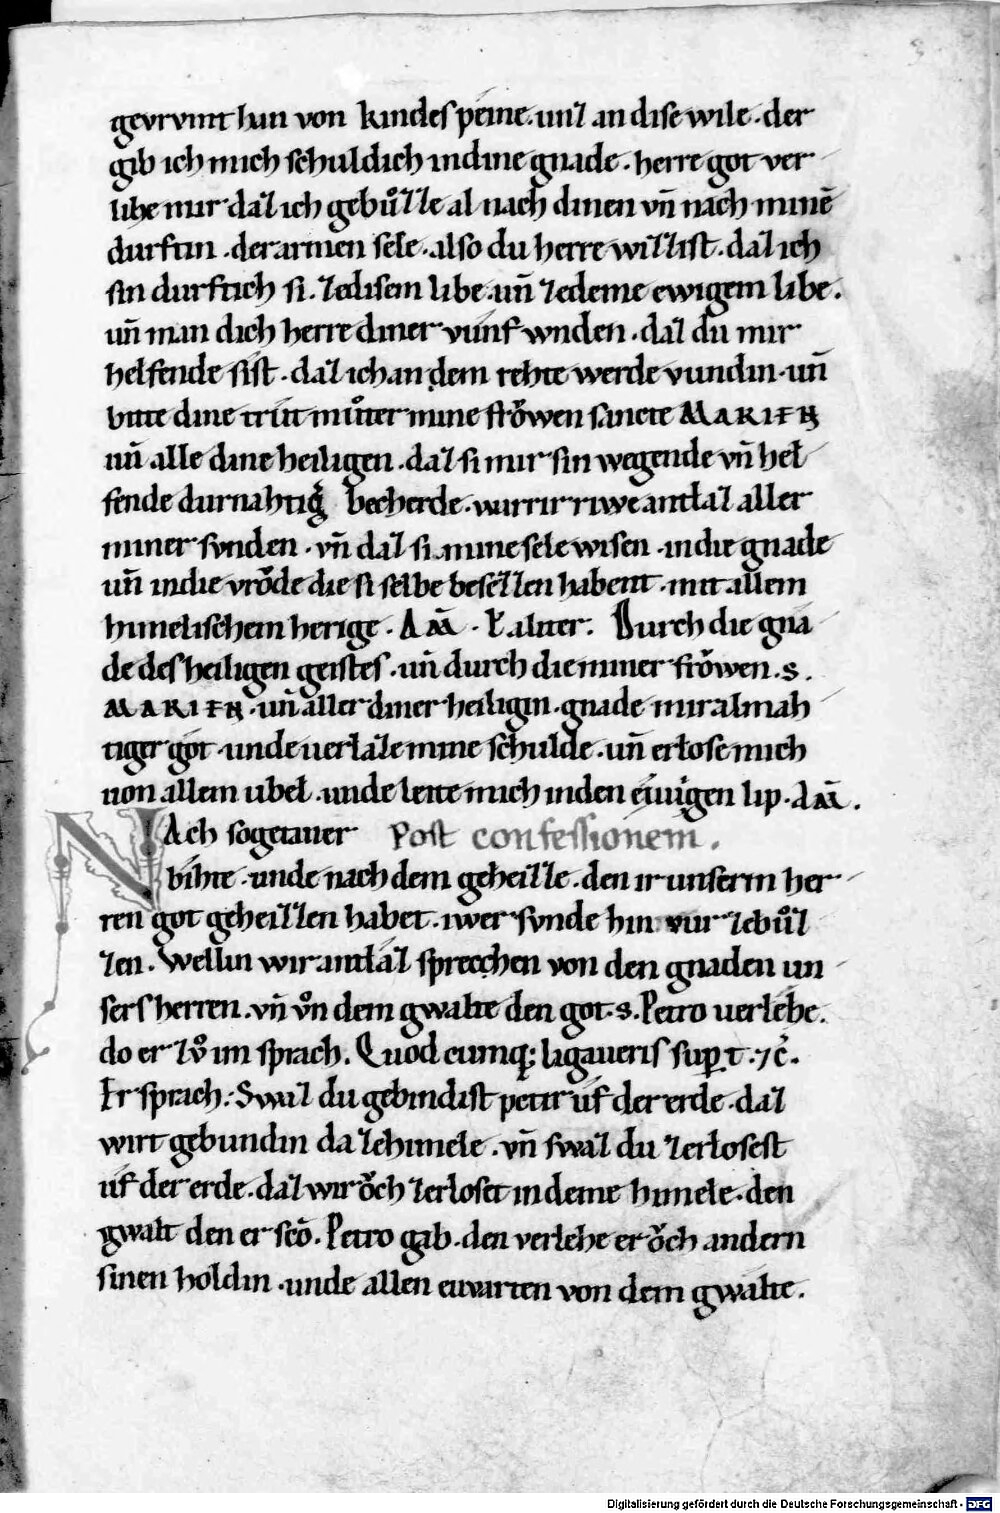 gevrvmt han von kindes peine. unz an dise wile. der
gib ich mich schuldich in dine gnade. herre got ver
lihe mir daz ich gebuͦzze al nach dinen vn̄ nach minē
durftin. der armen sele. also du herre willist. daz ich
sin durftich si. ze disem libe. un̄ ze deme ewigem libe.
un̄ man dich herre diner vunf wnden. daz du mir
helfende sist. daz ich an dem rehte werde vundin. un̄
bitte dine trût muͦter mine froͮwen sancte MARIEN
un̄ alle dine heiligen. daz si mir sin wegende vn̄ hel
fende durnahtiger becherde. warrir riwe antlaz aller
miner svnden. vn̄ daz si mine sele wisen. in die gnade
un̄ in die vroͮde die si selbe besezzen habent. mit allem
himelischem herige. Am̄. Psalter. Durch die gna
de des heiligen geistes. un̄ durch die miner froͮwen. S.
MARIEN. un̄ aller diner heiligin. gnade mir almah
tiger got. unde verlaze mine schulde. un̄ erlose mich
uon allem ubel. unde leite mich in den ewigen lip. Am̄.
NAch sogetaner Post confessionem.
bihte. unde nach dem geheizze. den ir unserm her
ren got geheizzen habet. iwer svnde hin vur ze buͦz
zen. Wellin wir antlaz sprecchen von den gnaden un
sers herren. vn̄ von dem gwalte den got. S. Petro uerlehe.
do er zvͦ im sprach. Quod cumq; ligaueris sup̱ t. 7c̄.
Er sprach. Swaz du gebindist petir ûf der erde. daz
wirt gebundin da ze himele. vn̄ swaz du zerlosest
uf der erde. daz wir oͮch zerloset in deme himele. den
gwalt den er sc̄o. Petro gab. den verlehe er oͮch andern
sinen holdin. unde allen euuarten von dem gwalte.
Digitalisierung gefördert durch die Deutsche Forschungsgemeinschaft - DFG